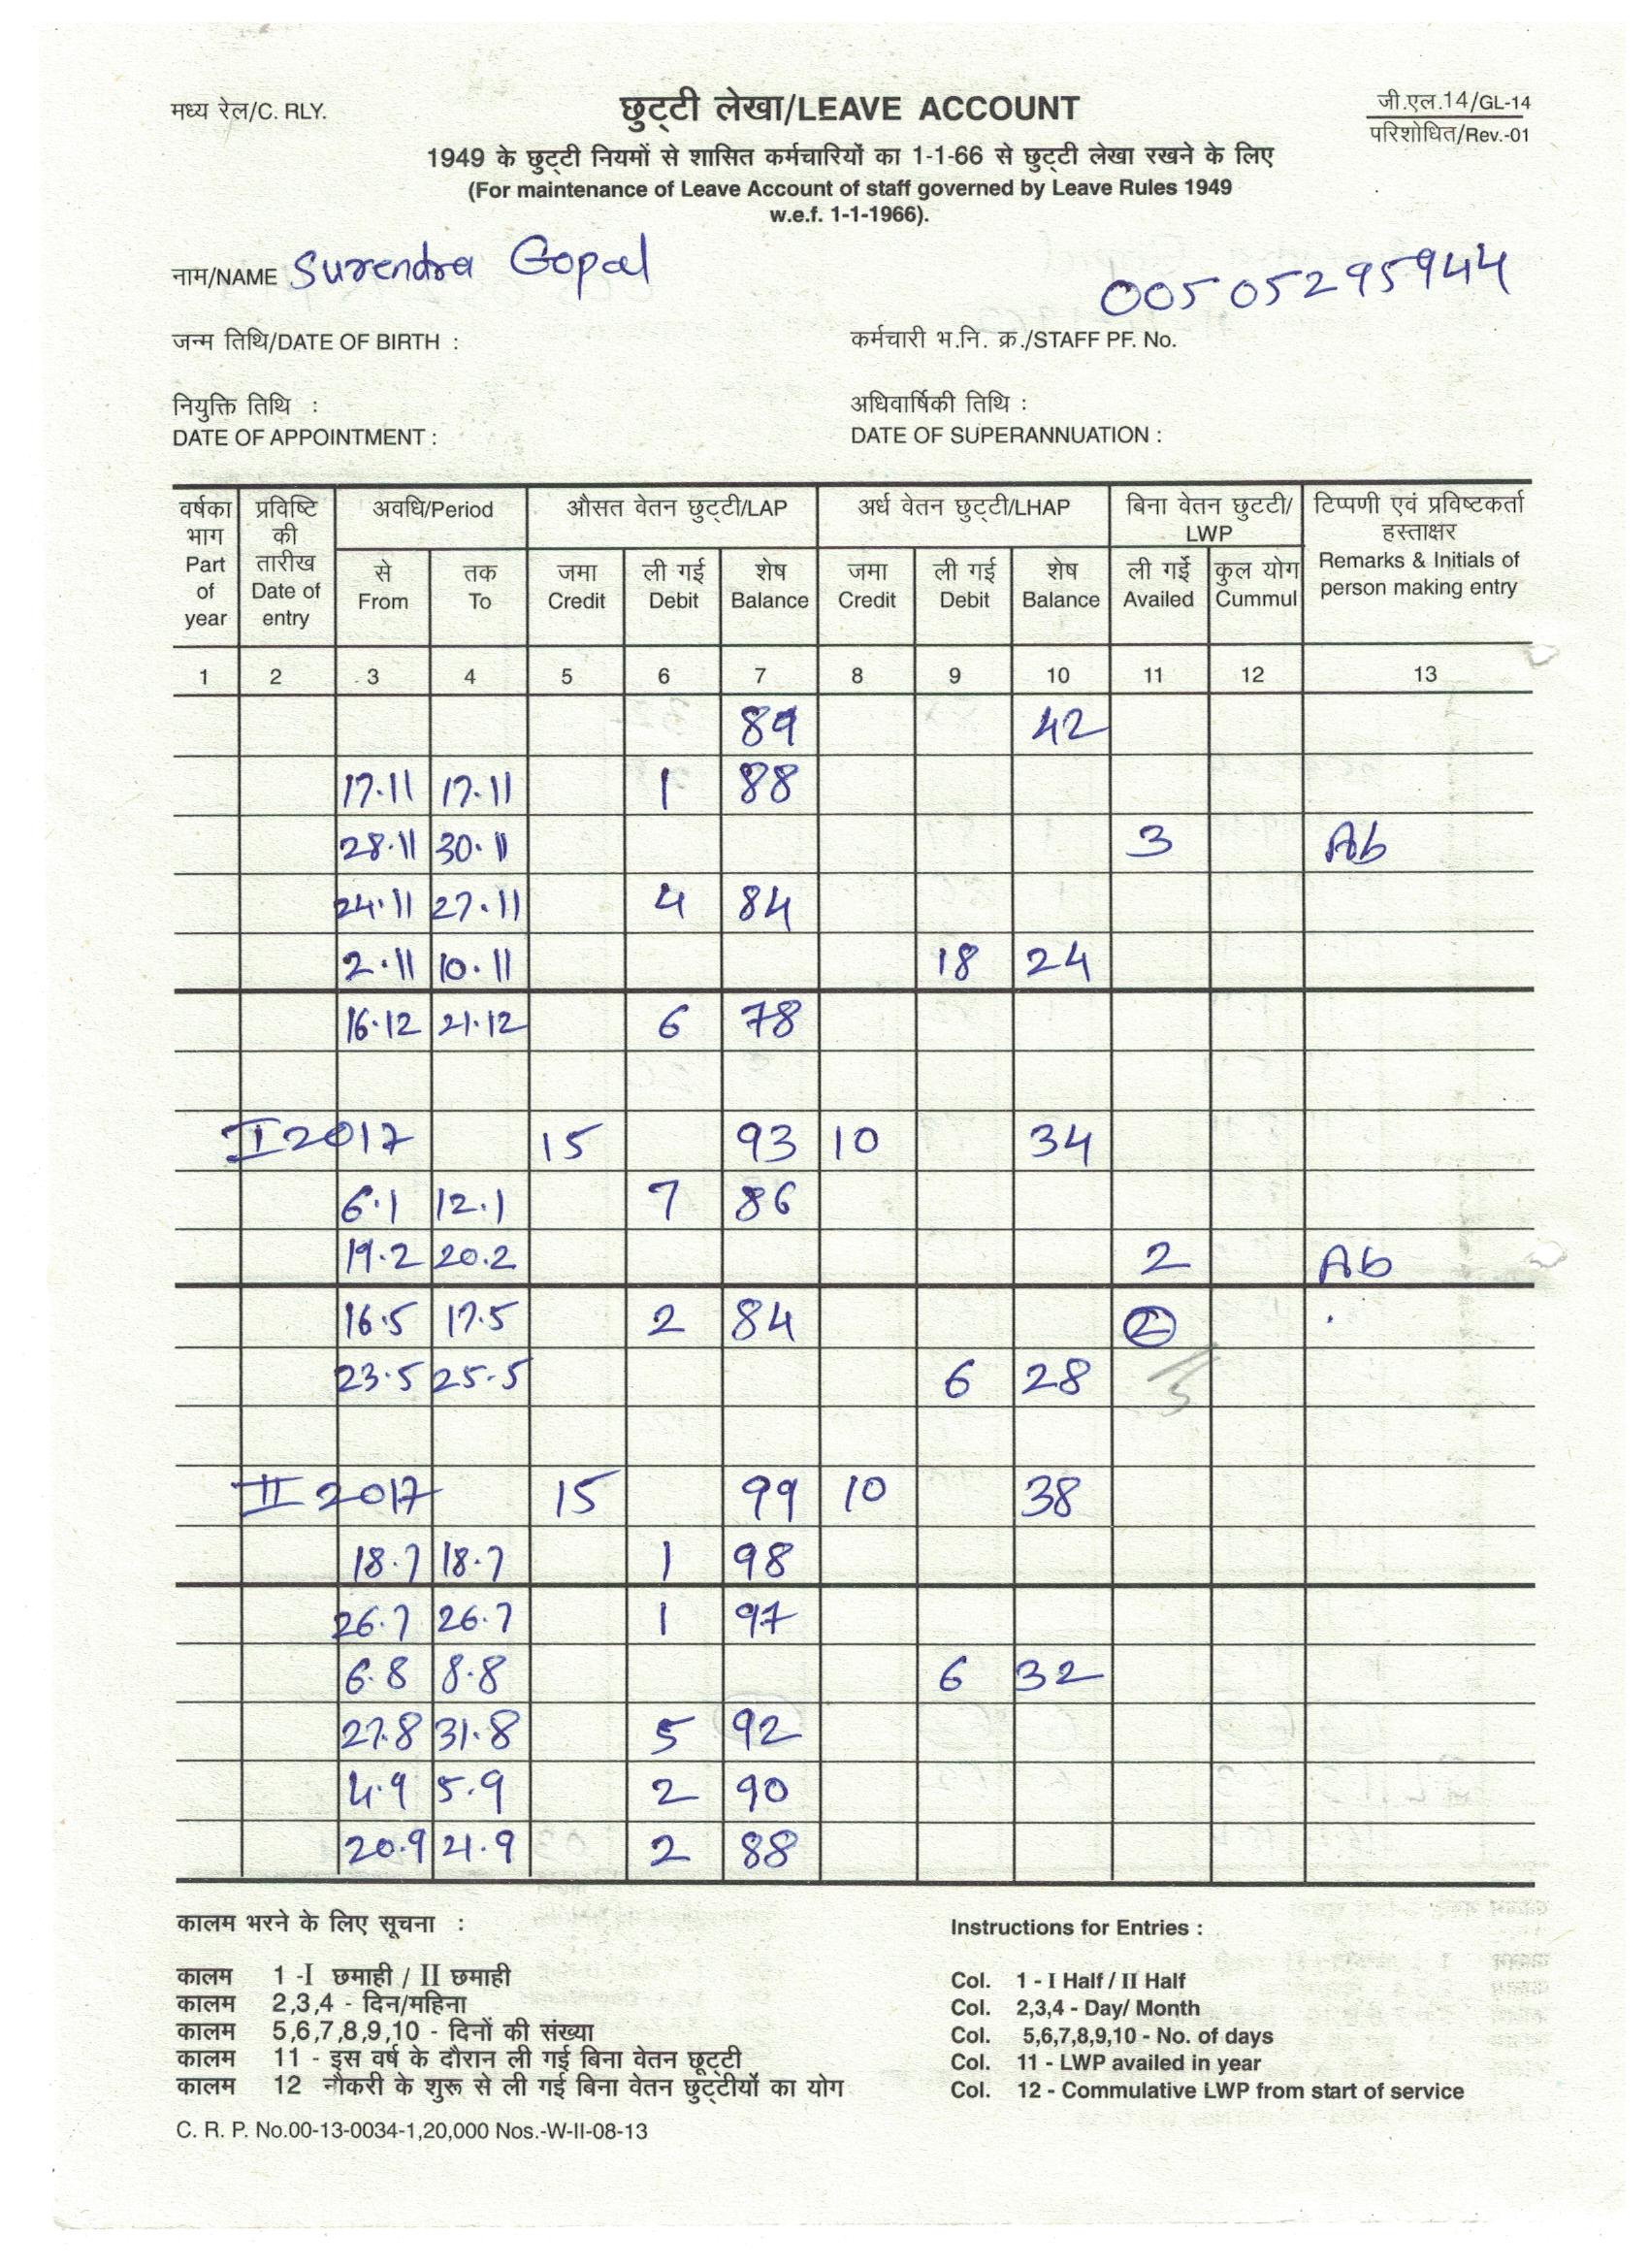 मध्य रेल/C. RLY.
छुट्टी लेखा/LEAVE ACCOUNT
जी.एल.14/GL-14
परिशोधित/Rev.-01
1949 के छुट्टी नियमों से शासित कर्मचारियों का 1-1-66 से छुट्टी लेखा रखने के लिए
(For maintenance of Leave Account of staff governed by Leave Rules 1949
w.e.f. 1-1-1966).
नाम/NAME Surendra Gopal
00505295944
जन्म तिथि/DATE OF BIRTH :
कर्मचारी भ.नि. क्र./STAFF PF. No.
नियुक्ति तिथि :
DATE OF APPOINTMENT :
अधिवार्षिकी तिथि :
DATE OF SUPERANNUATION :
वर्षका भाग Part of year
प्रविष्टि की तारीख Date of entry
अवधि/Period
औसत वेतन छुट्टी/LAP
अर्ध वेतन छुट्टी/LHAP
बिना वेतन छुटटी/ LWP
टिप्पणी एवं प्रविष्टकर्ता हस्ताक्षर Remarks & Initials of person making entry
से From
तक To
जमा Credit
ली गई Debit
शेष Balance
जमा Credit
ली गई Debit
शेष Balance
ली गईे Availed
कुल योग Cummul
1 2 3 4 5 6 7 8 9 10 11 12 13
89 42
17.11 17.11 1 88
28.11 30.11 3 Ab
24.11 27.11 4 84
2.11 10.11 18 24
16.12 21.12 6 78
I 2017 15 93 10 34
6.1 12.1 7 86
19.2 20.2 2 Ab
16.5 17.5 2 84 2
23.5 25.5 6 28
II 2017 15 99 10 38
18.7 18.7 1 98
26.7 26.7 1 97
6.8 8.8 6 32
27.8 31.8 5 92
4.9 5.9 2 90
20.9 21.9 2 88
कालम भरने के लिए सूचना :
कालम 1 -I छमाही / II छमाही
कालम 2,3,4 - दिन/महिना
कालम 5,6,7,8,9,10 - दिनों की संख्या
कालम 11 - इस वर्ष के दौरान ली गई बिना वेतन छूट्टी
कालम 12 नौकरी के शुरू से ली गई बिना वेतन छुट्टीयों का योग
Instructions for Entries :
Col. 1 - I Half / II Half
Col. 2,3,4 - Day/ Month
Col. 5,6,7,8,9,10 - No. of days
Col. 11 - LWP availed in year
Col. 12 - Commulative LWP from start of service
C. R. P. No.00-13-0034-1,20,000 Nos.-W-II-08-13